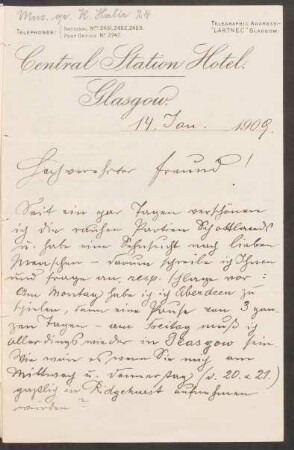 Mus. ep. K. Halir 24
TELEPHONES:
NATIONAL Nos 2451, 2452, 2453.
POST OFFICE No 2942.
TELEGRAPHIC ADDRESS:-
"LARTNEC" GLASGOW.
Central Station Hotel.
Glasgow.
14 Jan. 1909.
Hochverehrter Freund!
Seit ein paar Tagen verschönen
ich die rauhen Partien Schottlands
u. habe eine Sehnsucht nach lieben
Menschen – darum schreibe ich Ihnen
und frage an, resp. schlage vor:
Am Montag habe ich in Aberdeen zu
spielen, dann eine Pause von 3 gan-
zen Tagen – am Freitag muß ich
allerdings wieder in Glasgow sein.
Wie wäre es wenn Sie mich am
Mittwoch u. Donnerstag (d. 20. u 21.)
gastlich in Ridgehurst aufnehmen
würden?